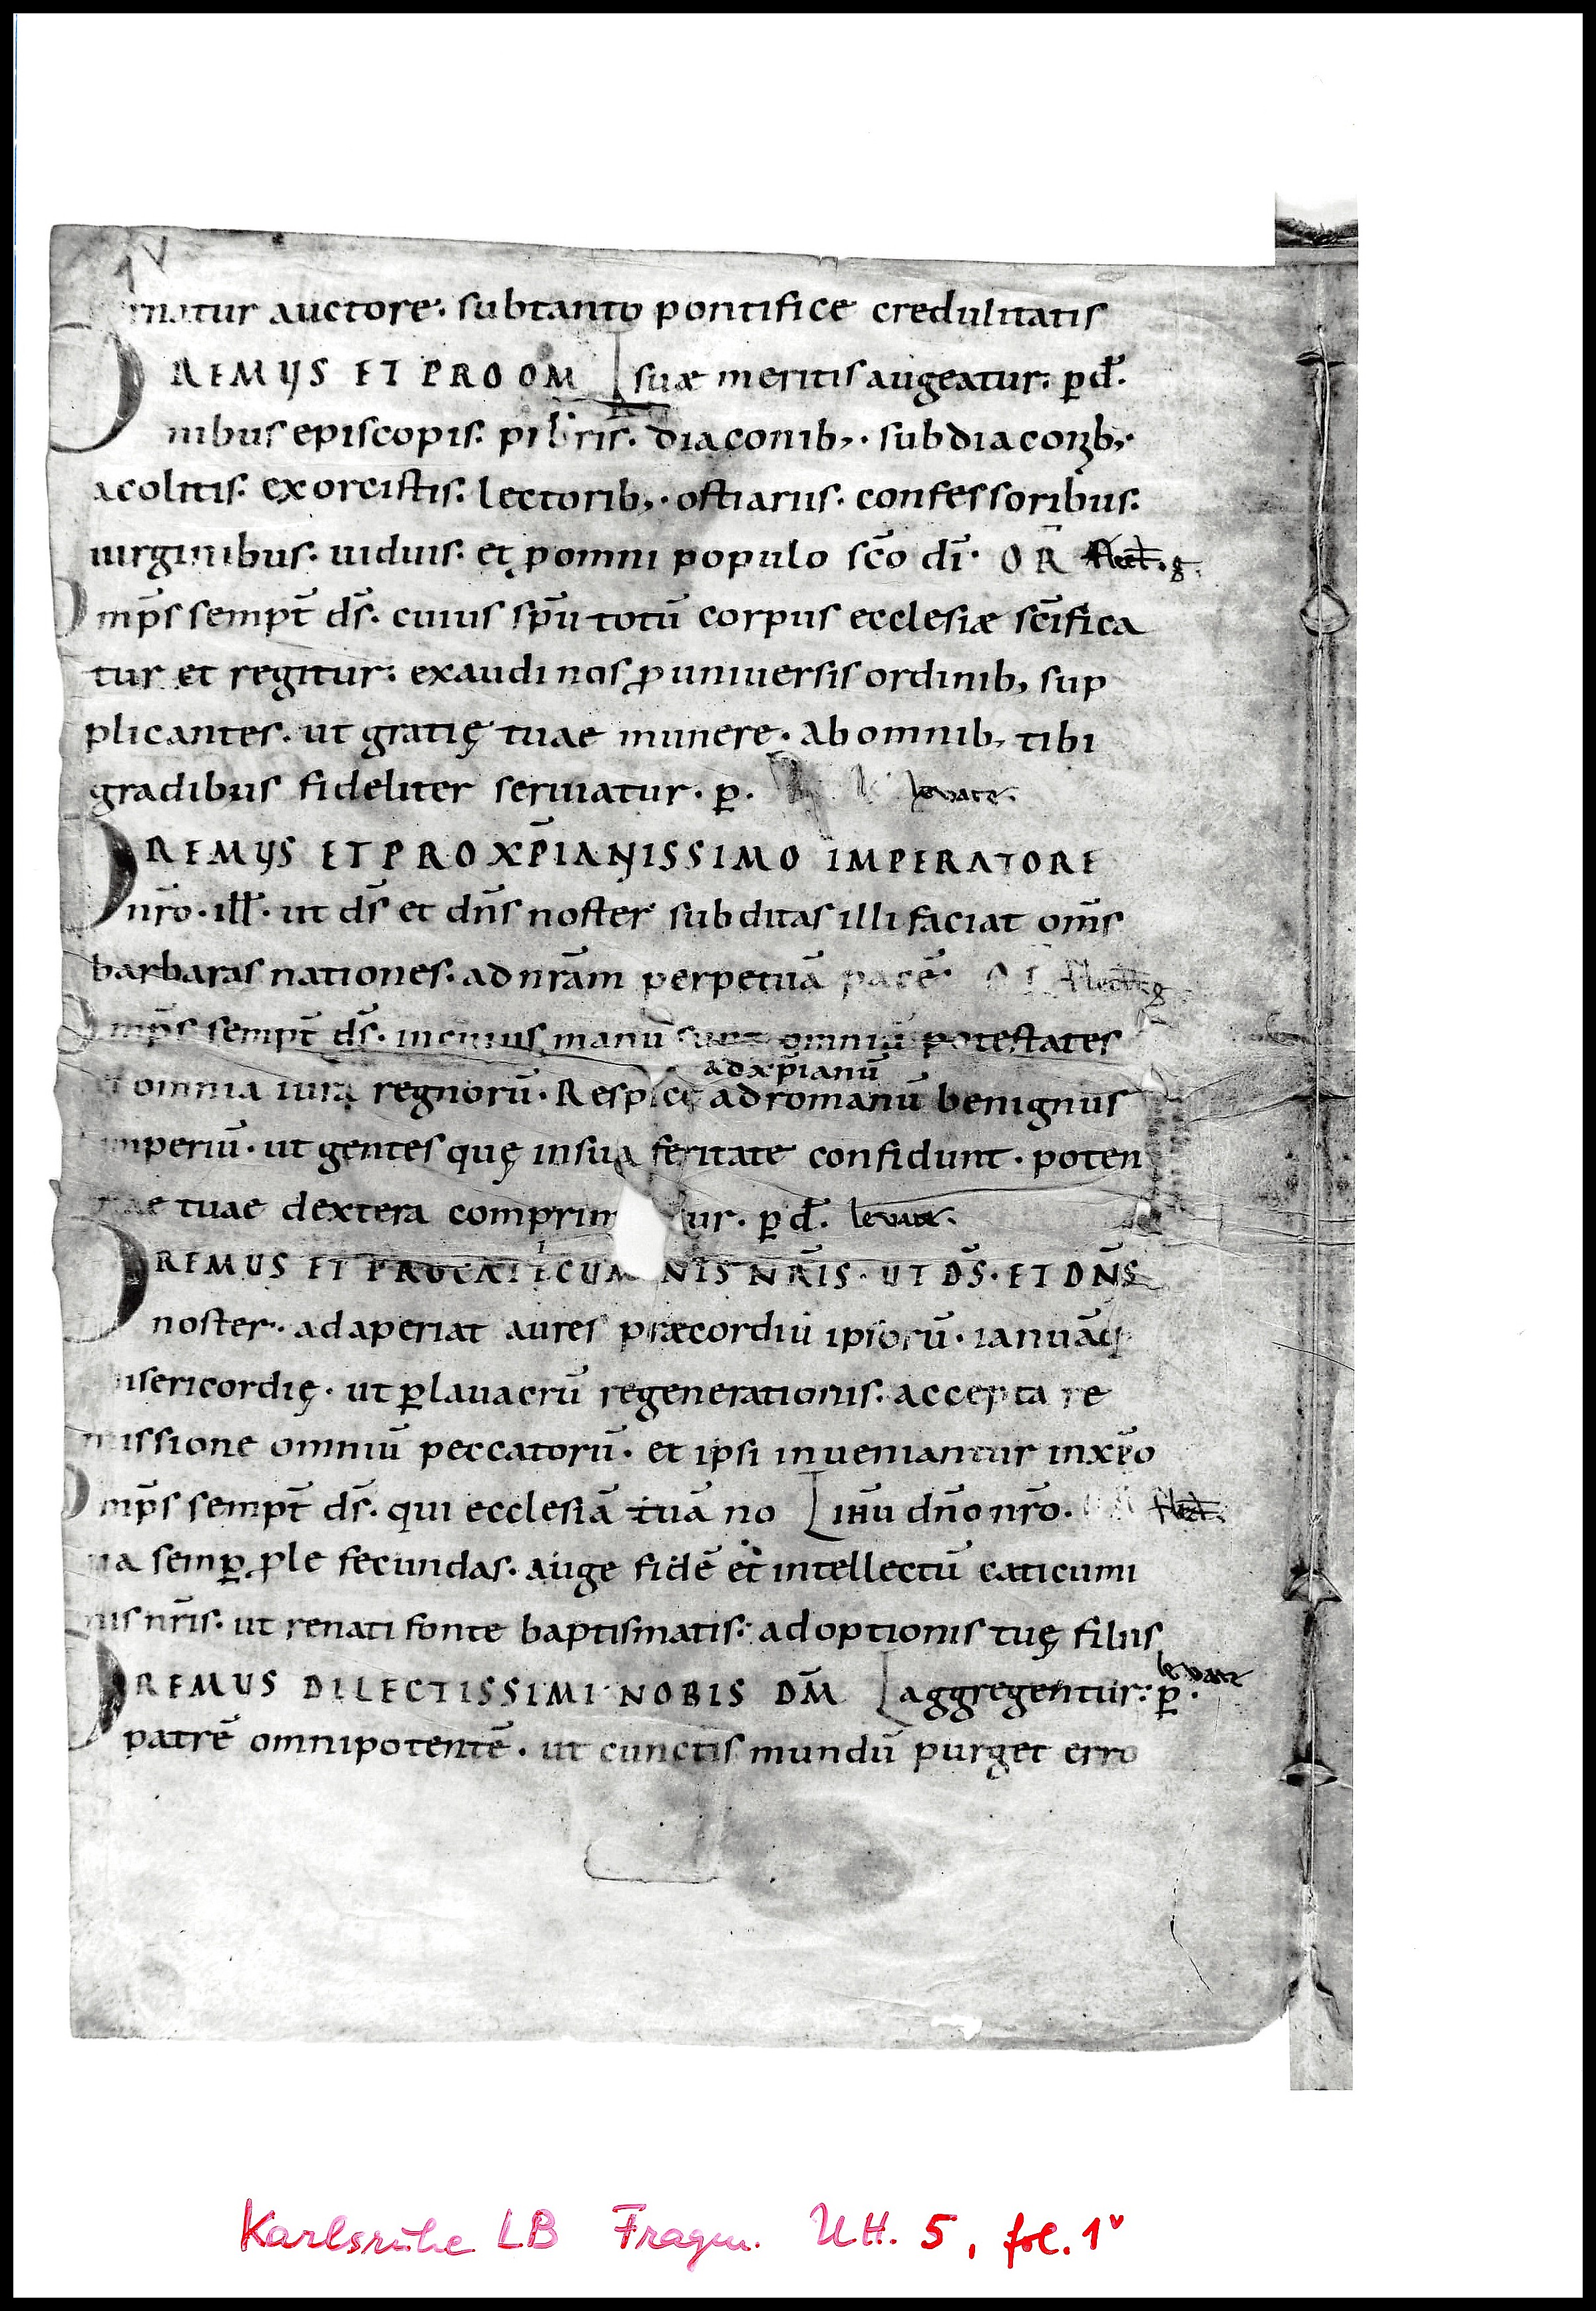 1v
rnatur auctore. subtanto pontifice credulitatis
OREMUS ET PRO OM suæ meritis augeatur. p̲ d̄.
nibus episcopis. p̄rb̄ris. diaconib;. subdiaconib;.
acolitis. exorcistis. lectorib;. ostiariis. confessoribus.
uirginibus. uiduis. et p omni populo sc̄o dī. OR̄ flect. g.
Omp̄s semp̄t d̄s. cuius sp̄u totū corpus ecclesiæ sc̄ifica
tur et regitur. exaudi nos p uniuersis ordinib; sup
plicantes. ut gratię tuae munere. ab omnib; tibi
gradibus fideliter seruiatur. p̲. levate.
OREMUS ET PRO XP̄IANISSIMO IMPERATORE
nr̄o. ill̄. ut d̄s et dn̄s noster subditas illi faciat om̄s
barbaras nationes. ad nr̄am perpetuā pacē. flect g
Omp̄s semp̄t d̄s. in cuius manu sunt omniū potestates
et omnia iura regnorū. Respice ad romanū benignus
ad xp̄ianū
imperiū. ut gentes quę in sua feritate confidunt. poten
tiae tuae dextera comprim ur. p̲ d̄. levate.
OREMUS ET PRO CATICUMINIS NR̄IS. UT D̄S. ET DN̄S
noster. adaperiat aures præcordiū ipsorū. ianuāq;
misericordię. ut p̲ lauacrū regenerationis. accepta re
missione omniū peccatorū. et ipsi inueniantur in xp̄o
Omp̄s semp̄t d̄s. qui ecclesiā tuā no ihū dn̄o nr̄o. OR flect.
ua semp̲ ple fecundas. auge fidē et intellectū caticumi
nis nr̄is. ut renati fonte baptismatis. adoptionis tuę filiis
levate
OREMUS DILECTISSIMI NOBIS DM̄ aggregentur. p̲.
patrē omnipotentē. ut cunctis mundū purget erro
Karlsruhe LB Fragm. UH. 5, fol. 1v